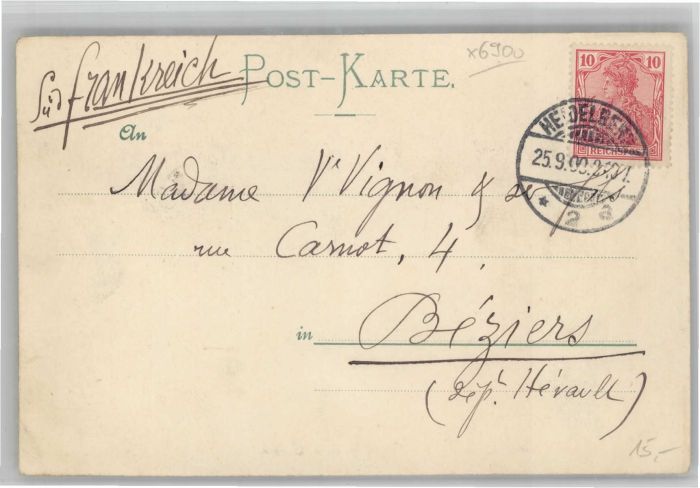 x6900
Süd-Frankreich
POST-KARTE.
10 10
REICHSPOST
HEIDELBERG
25.9.00.
* 2 a
An
Madame Vve Vignon & ses fils
rue Carnot, 4.
in Béziers
(dépt. Hérault)
15,-